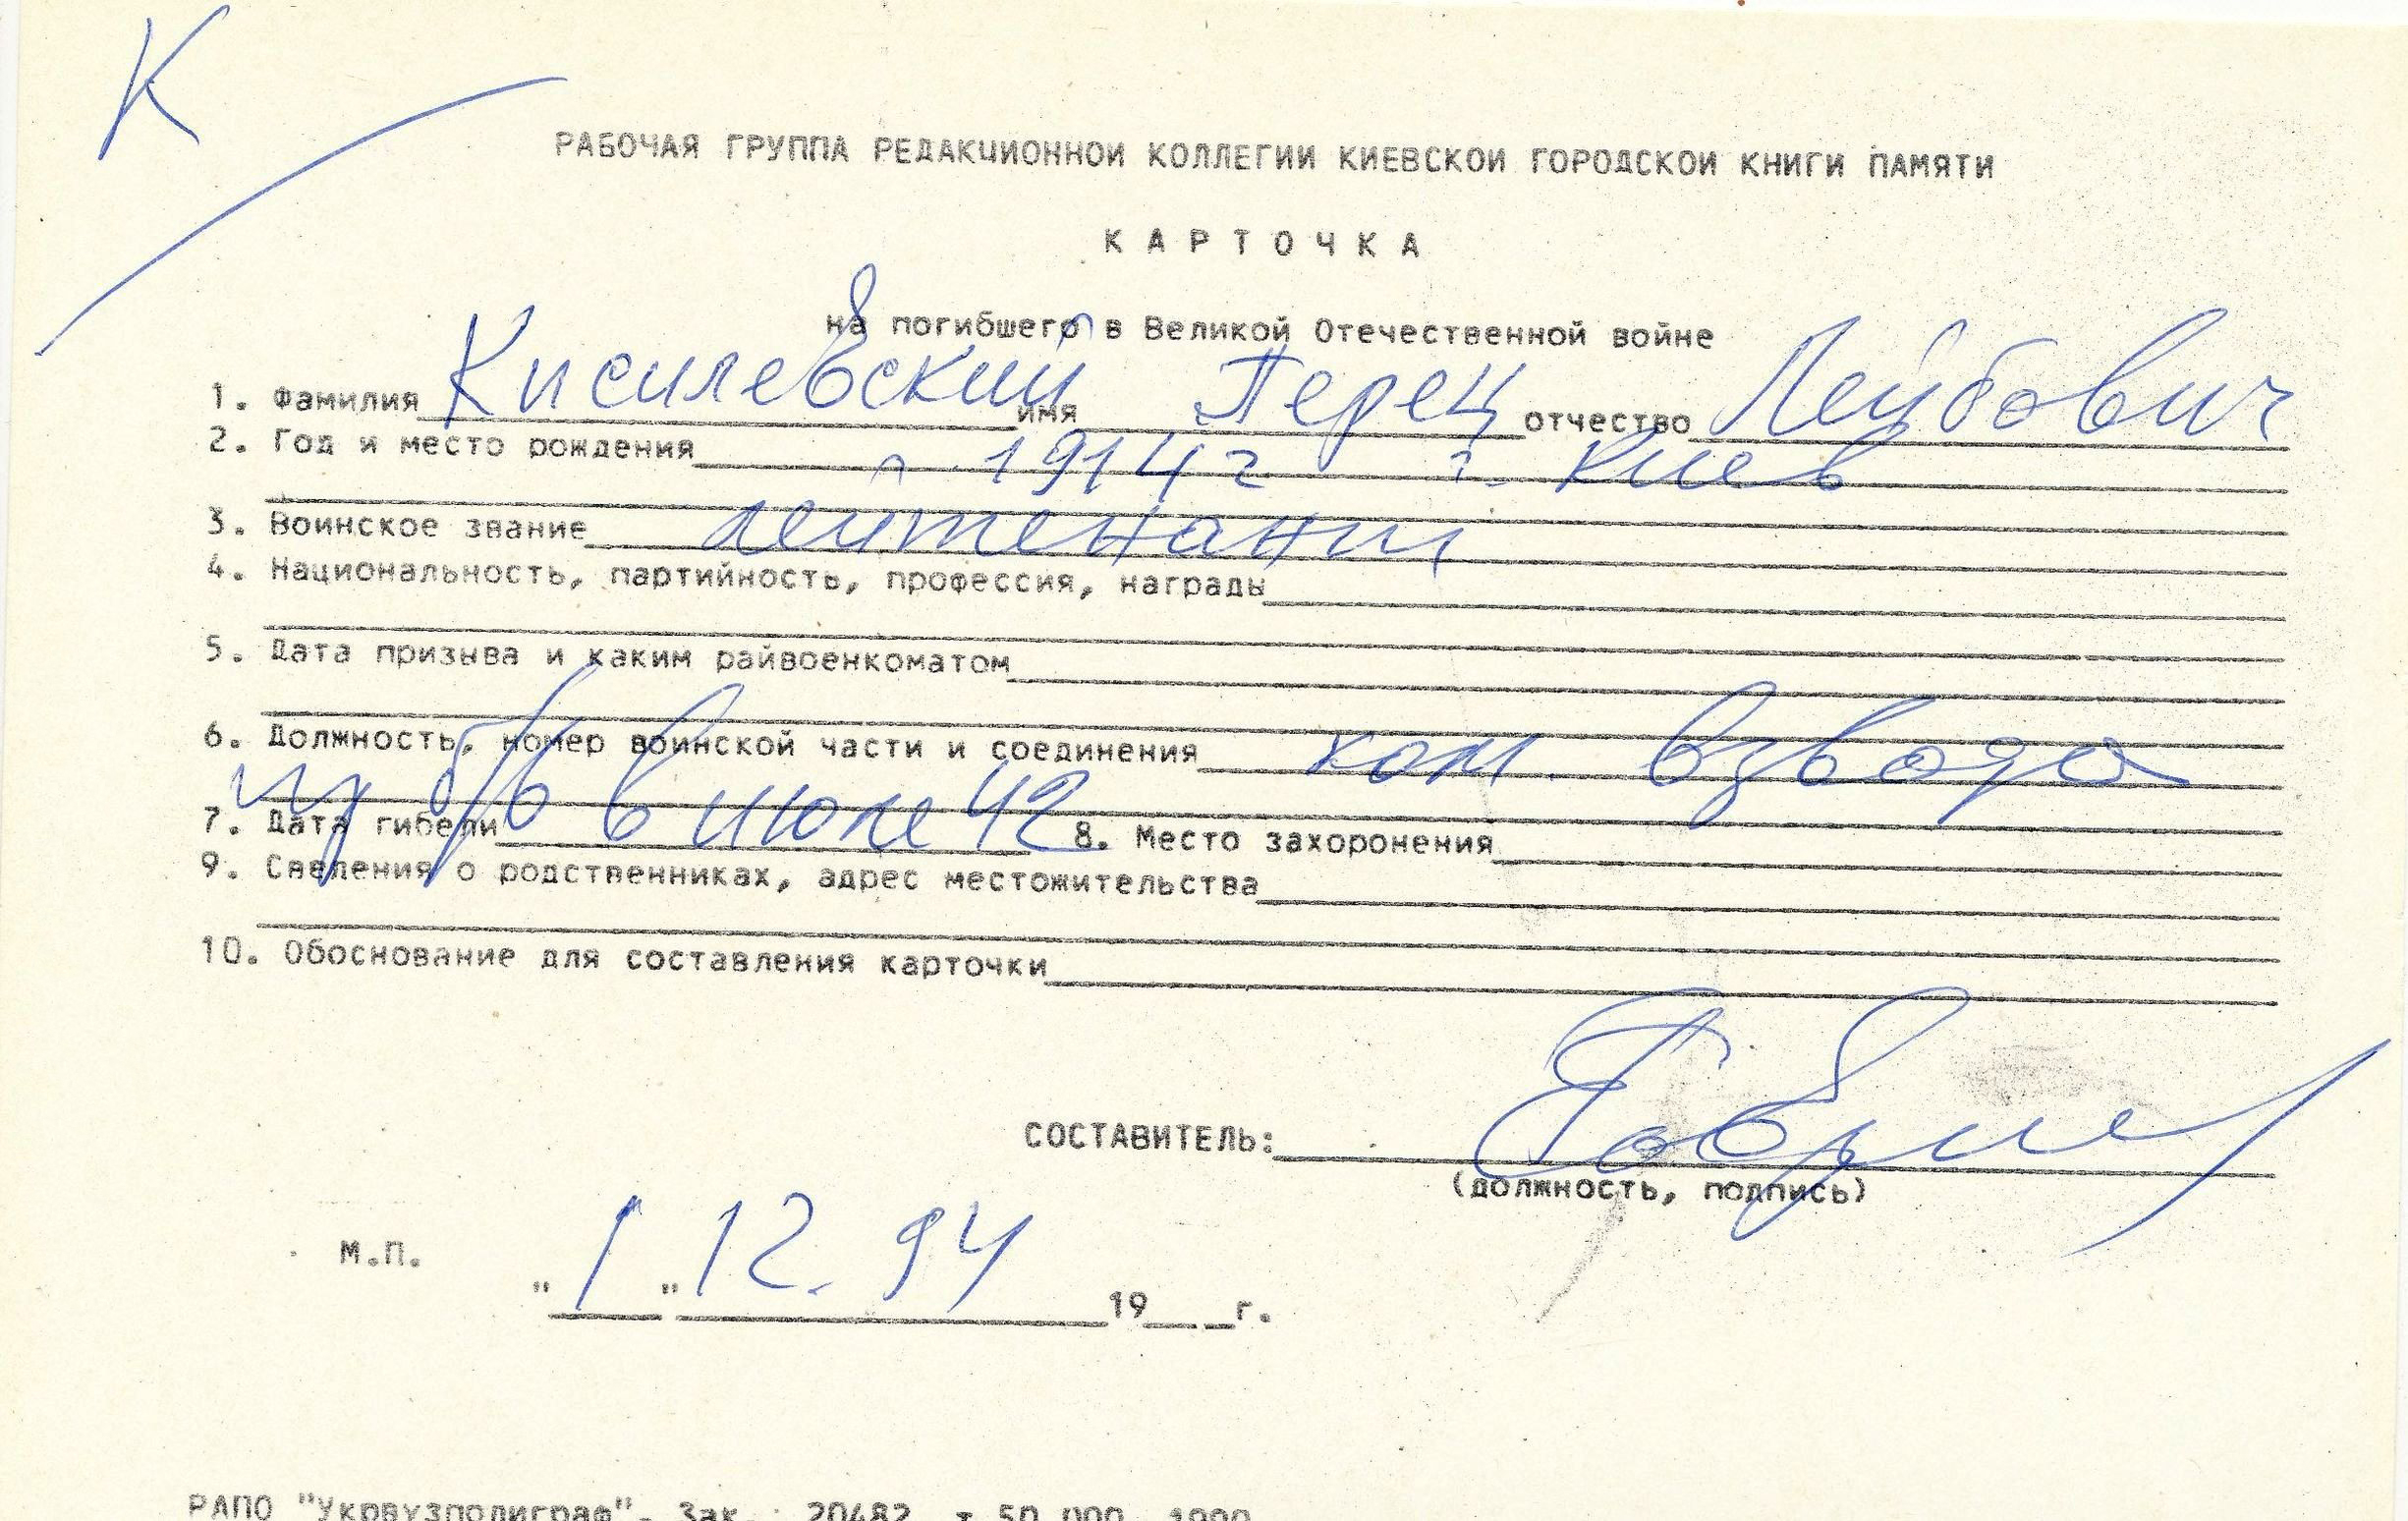 К
РАБОЧАЯ ГРУППА РЕДАКЦИОННОЙ КОЛЛЕГИИ КИЕВСКОЙ ГОРОДСКОЙ КНИГИ ПАМЯТИ
К А Р Т О Ч К А
на погибшего в Великой Отечественной войне
1. Фамилия Кисилевский имя Перец отчество Лейбович
2. Год и место рождения 1914 г г. Киев
3. Воинское звание лейтенант
4. Национальность, партийность, профессия, награды
5. Дата призыва и каким райвоенкоматом
6. Должность, номер воинской части и соединения ком. взвода
7. Дата гибели пр бв в июле 42 8. Место захоронения
9. Сведения о родственниках, адрес местожительства
10. Обоснование для составления карточки
СОСТАВИТЕЛЬ:
(должность, подпись)
М.П.
"1" 12. 94 19__г.
РАПО "Укрвузполиграф". Зак. 20482 т 50 000 1990